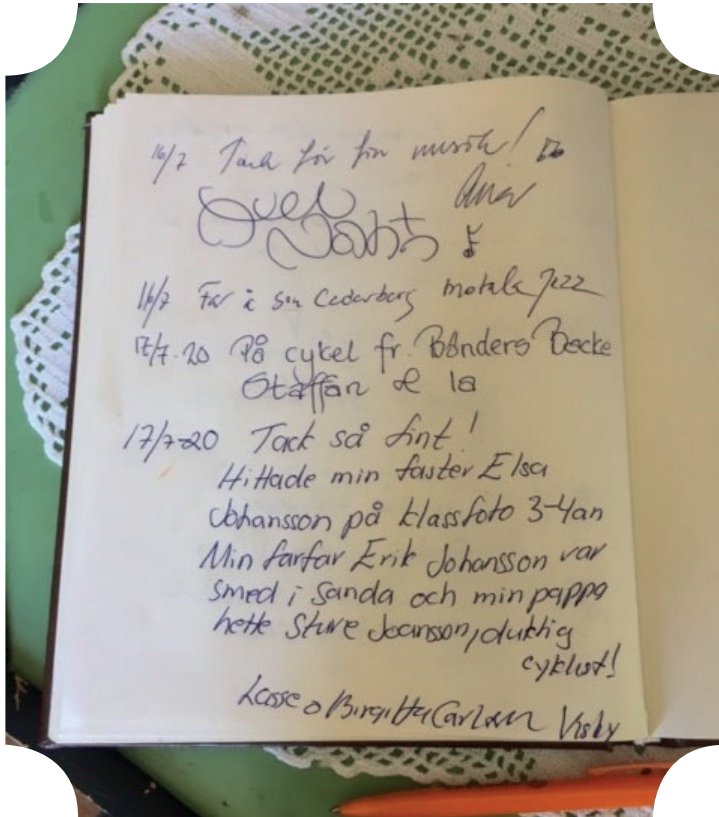 16/7 Tack för fin musik!
16/7 Far & son Cederberg Motala Jazz
17/7.20 På cykel fr. Bönders Backe
Staffan & Ia
17/7-20 Tack så fint!
Hittade min faster Elsa
Johansson på klassfoto 3-4an
Min farfar Erik Johansson var
smed i Sanda och min pappa
hette Sture Joansson, duktig
cyklist!
Lasse o Birgitta Carlsson Visby